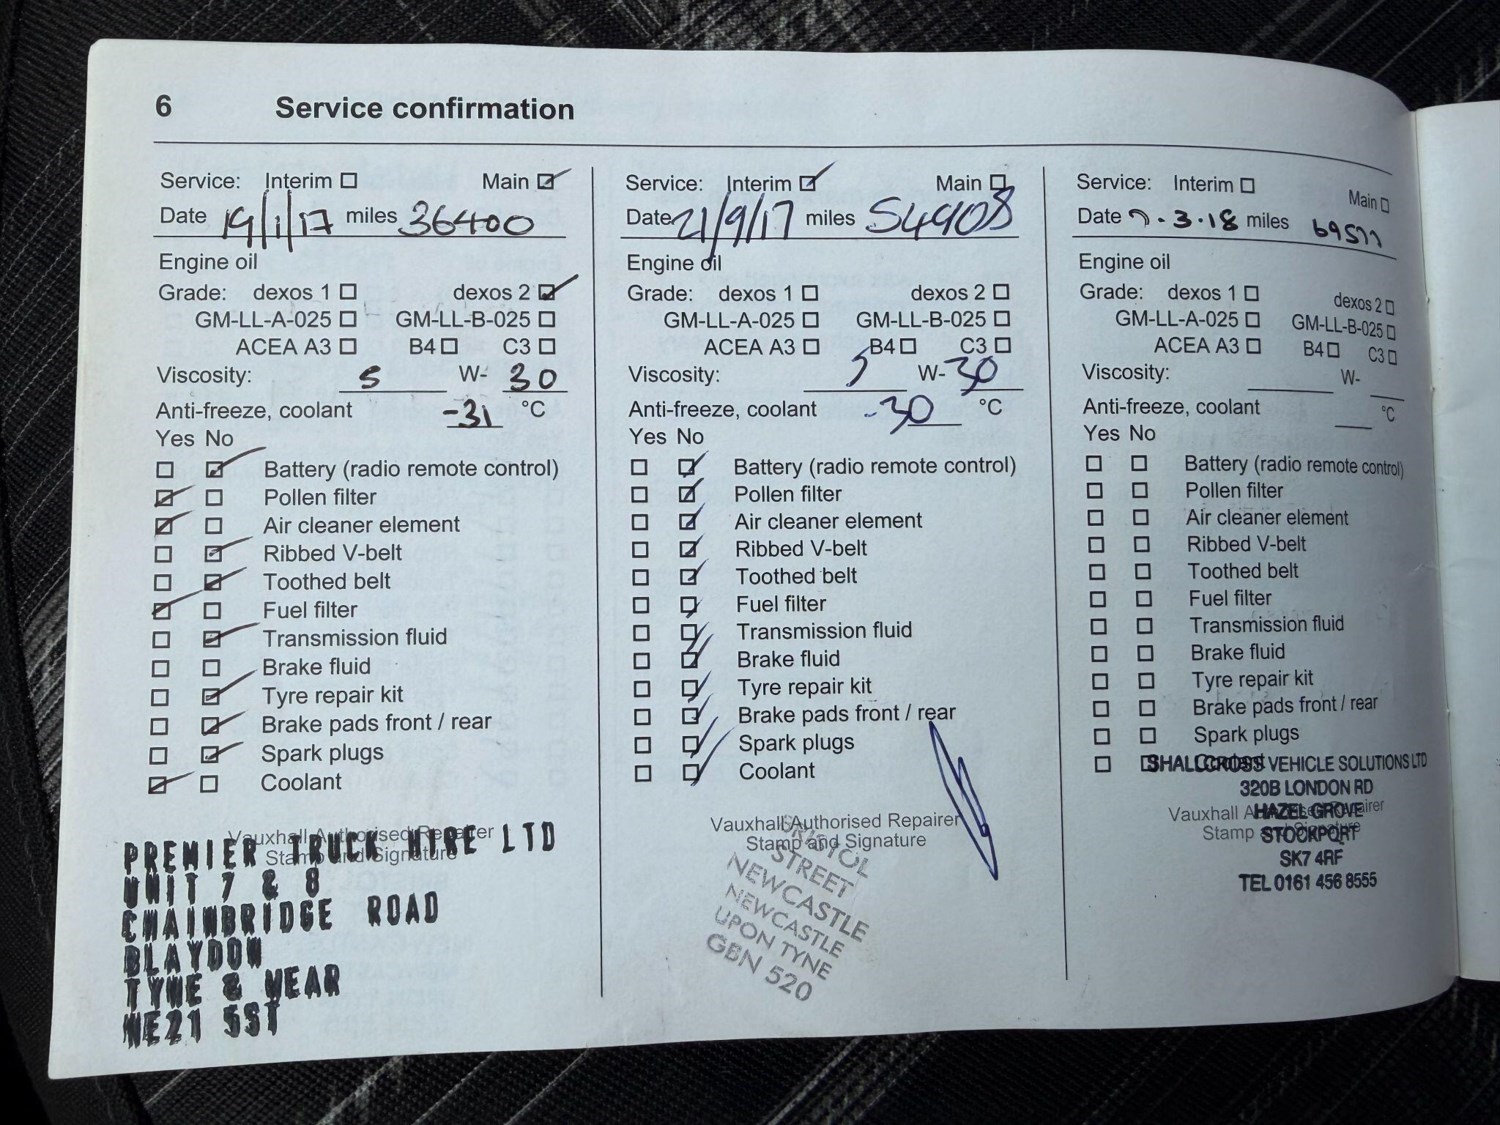 6 Service confirmation
Service: Interim Main
Date 19/1/17 miles 36400
Engine oil
Grade: dexos 1 dexos 2
GM-LL-A-025 GM-LL-B-025
ACEA A3 B4 C3
Viscosity: 5 W- 30
Anti-freeze, coolant -31 °C
Yes No
Battery (radio remote control)
Pollen filter
Air cleaner element
Ribbed V-belt
Toothed belt
Fuel filter
Transmission fluid
Brake fluid
Tyre repair kit
Brake pads front / rear
Spark plugs
Coolant
Vauxhall Authorised Repairer
Stamp and Signature
PREMIER TRUCK HIRE LTD
UNIT 7 & 8
CHAINBRIDGE ROAD
BLAYDON
TYNE & WEAR
NE21 5ST
Service: Interim Main
Date 21/9/17 miles 54908
Engine oil
Grade: dexos 1 dexos 2
GM-LL-A-025 GM-LL-B-025
ACEA A3 B4 C3
Viscosity: 5 W- 30
Anti-freeze, coolant -30 °C
Yes No
Battery (radio remote control)
Pollen filter
Air cleaner element
Ribbed V-belt
Toothed belt
Fuel filter
Transmission fluid
Brake fluid
Tyre repair kit
Brake pads front / rear
Spark plugs
Coolant
Vauxhall Authorised Repairer
Stamp and Signature
BRISTOL
STREET
NEWCASTLE
NEWCASTLE
UPON TYNE
GBN 520
Service: Interim Main
Date 7.3.18 miles 69577
Engine oil
Grade: dexos 1 dexos 2
GM-LL-A-025 GM-LL-B-025
ACEA A3 B4 C3
Viscosity: W-
Anti-freeze, coolant °C
Yes No
Battery (radio remote control)
Pollen filter
Air cleaner element
Ribbed V-belt
Toothed belt
Fuel filter
Transmission fluid
Brake fluid
Tyre repair kit
Brake pads front / rear
Spark plugs
Coolant
Vauxhall Authorised Repairer
Stamp and Signature
SHALLCROSS VEHICLE SOLUTIONS LTD
320B LONDON RD
HAZEL GROVE
STOCKPORT
SK7 4RF
TEL 0161 456 8555